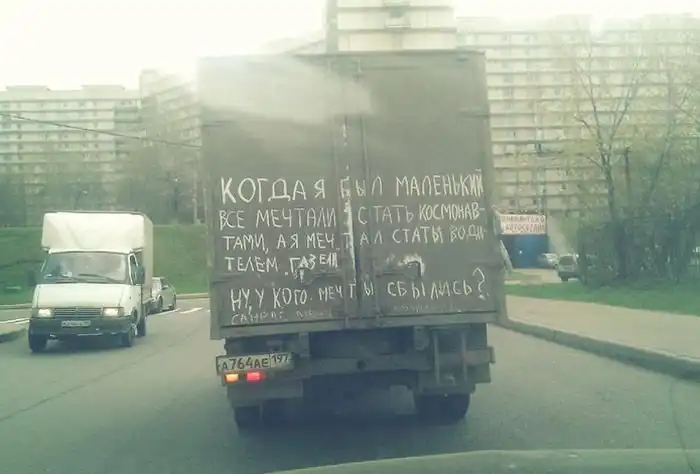 КОГДА Я БЫЛ МАЛЕНЬКИЙ
ВСЕ МЕЧТАЛИ СТАТЬ КОСМОНАВ-
ТАМИ, А Я МЕЧТАЛ СТАТЬ ВОДИ-
ТЕЛЕМ ГАЗЕЛИ
НУ, У КОГО МЕЧТЫ СБЫЛИСЬ?
А764АЕ 197